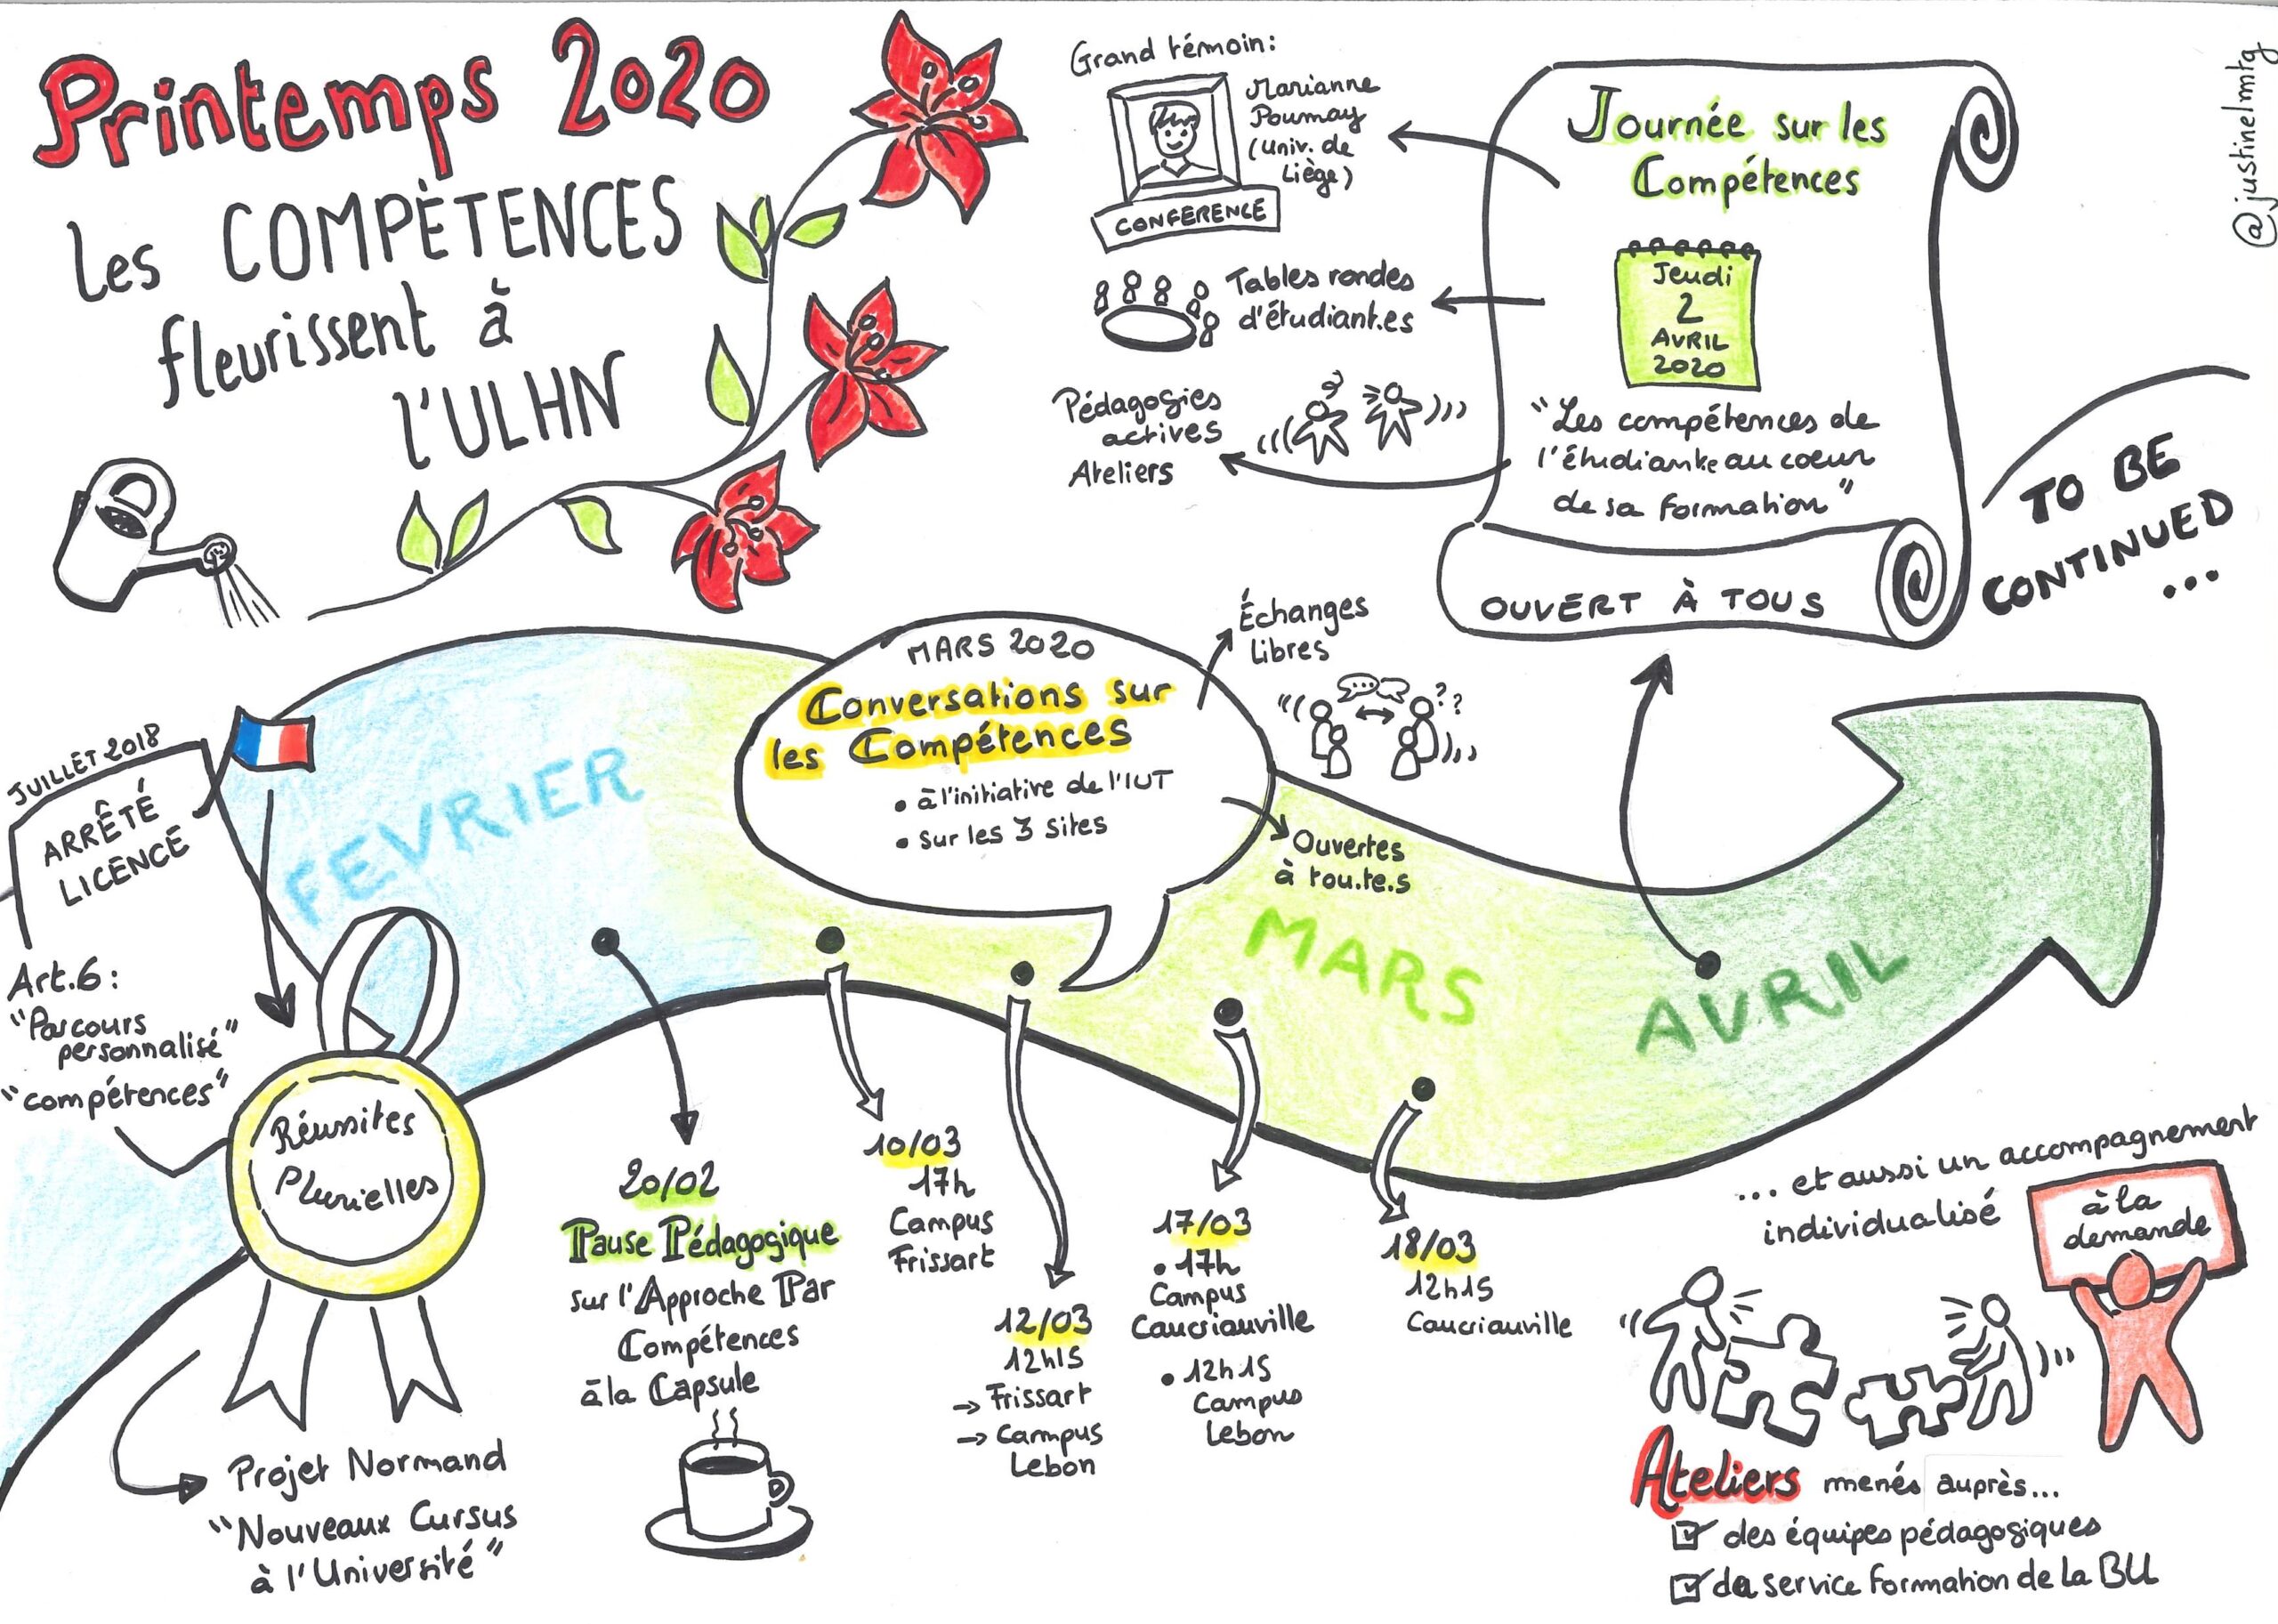 Printemps 2020
les COMPÉTENCES
fleurissent à
l'ULHN
Grand témoin:
Marianne
Poumay
(Univ. de
Liège)
CONFÉRENCE
Tables rondes
d'étudiant.es
Pédagogies
actives
Ateliers
Journée sur les
Compétences
Jeudi
2
AVRIL
2020
"Les compétences de
l'étudiant.e au coeur
de sa formation"
OUVERT À TOUS
TO BE
CONTINUED
...
@justinelmtg
JUILLET 2018
ARRÊTÉ
LICENCE
Art.6:
"Parcours
personnalisé"
"compétences"
Réussites
Plurielles
Projet Normand
"Nouveaux Cursus
à l'Université"
FEVRIER
MARS 2020
Conversations sur
les Compétences
• à l'initiative de l'IUT
• sur les 3 sites
Échanges
libres
??
Ouvertes
à tou.te.s
MARS
AVRIL
20/02
Pause Pédagogique
sur l'Approche Par
Compétences
à la Capsule
10/03
17h
Campus
Frissart
12/03
12h15
→ Frissart
→ Campus
Lebon
17/03
• 17h
Campus
Caucriauville
• 12h15
Campus
Lebon
18/03
12h15
Caucriauville
... et aussi un accompagnement
individualisé
à la
demande
Ateliers menés auprès...
des équipes pédagogiques
du service formation de la BU